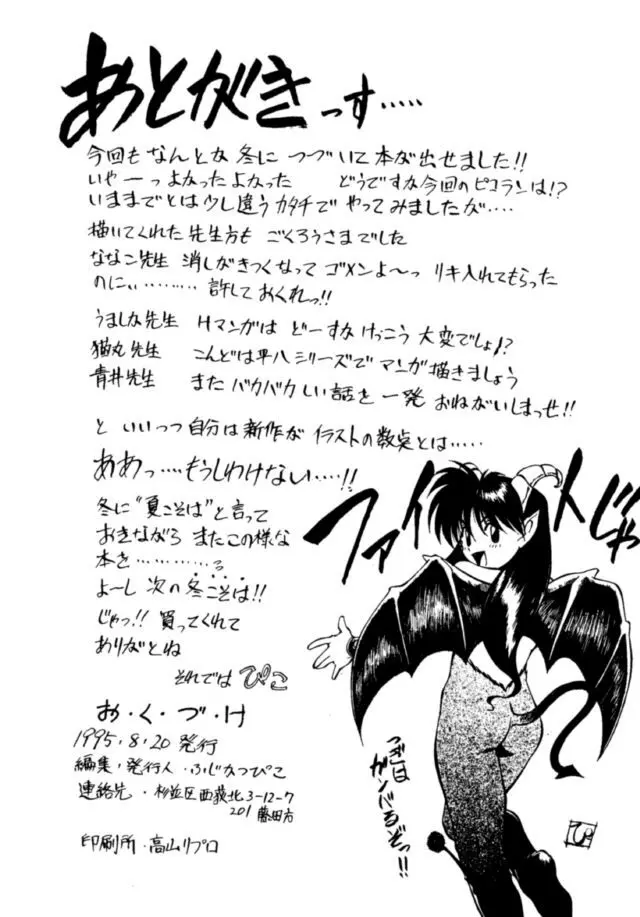 あとがきっす‥‥‥
今回もなんとな冬につづいて本が出せました!!
いやーっよかったよかった どうですな今回のピコランは!?
いままでとは少し違うカタチでやってみましたが‥‥
描いてくれた先生方も ごくろうさまでした
ななこ先生 消しがきつくなって ゴメンよ〜っ リキ入れてもらった
のにぃ‥‥‥‥ 許しておくれっ!!
うましな先生 Hマンガは どーすな けっこう 大変でしょ!?
猫丸先生 こんどは平八シリーズで マンガ描きましょう
青井先生 また バカバカしい話を 一発 おねがいしまっせ!!
と いいつつ 自分は新作が イラストの数点とは‥‥‥
ああっ‥‥もうしわけない‥‥‥!!
冬に"夏こそは"と言って
おきながら またこの様な
本を‥‥‥‥‥‥
よーし 次の冬こそは!!
じゃっ!! 買ってくれて
ありがとね
それでは ぴこ
ファイトじゃ
つぎは
ガンバるぞっ!!
ぴ
お・く・づ・け
1995.8.20 発行
編集・発行人・ふじなつぴこ
連絡先・杉並区西荻北3-12-7
201 藤田方
印刷所・高山リプロ